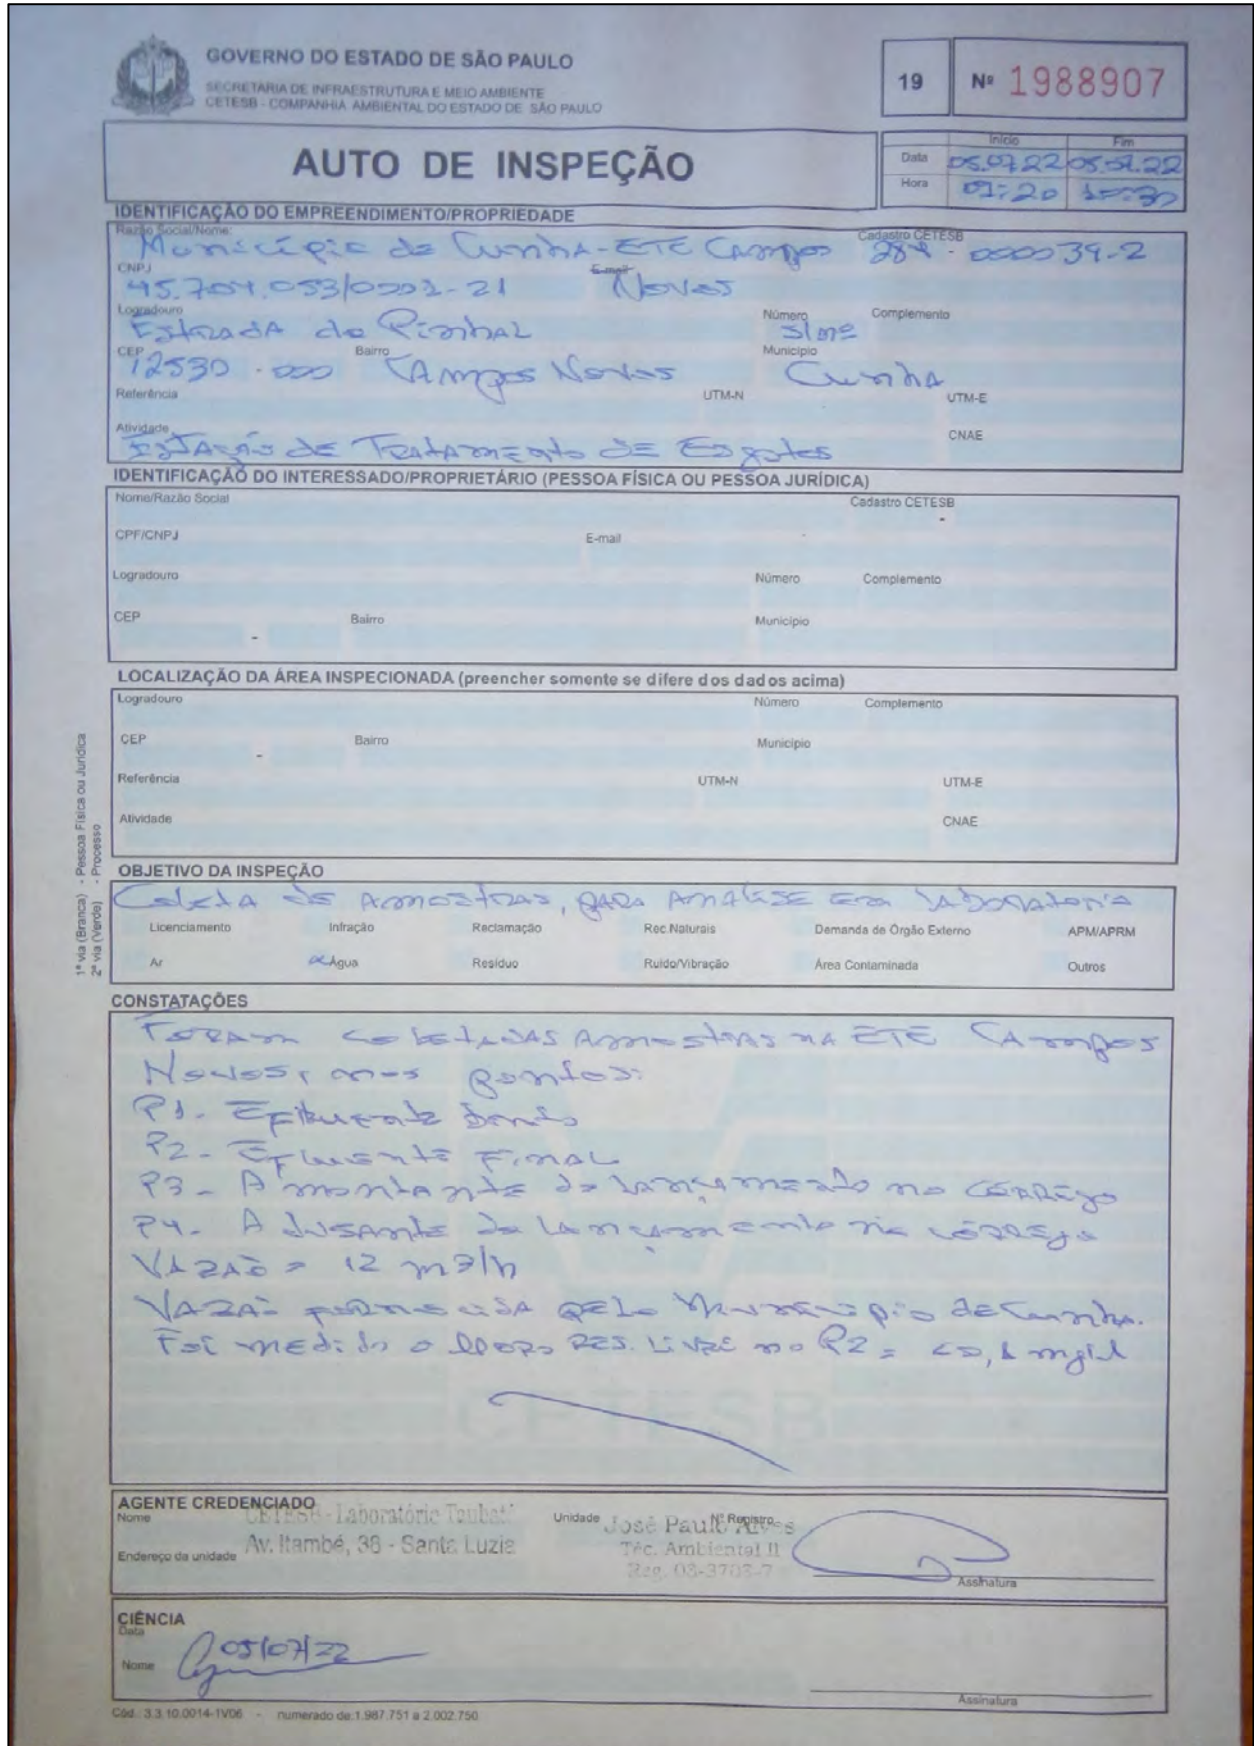 GOVERNO DO ESTADO DE SÃO PAULO
SECRETARIA DE INFRAESTRUTURA E MEIO AMBIENTE
CETESB - COMPANHIA AMBIENTAL DO ESTADO DE SÃO PAULO
19 Nº 1988907
AUTO DE INSPEÇÃO
Início Fim
Data 05.07.22 05.07.22
Hora 09:20 10:30
IDENTIFICAÇÃO DO EMPREENDIMENTO/PROPRIEDADE
Razão Social/Nome: Cadastro CETESB
Município de Cunha - ETE Campos 284-000039-2
CNPJ E-mail
45.704.053/0001-21 Novos
Logradouro Número Complemento
Estrada do Pinhal s/nº
CEP Bairro Município
12530-000 Campos Novos Cunha
Referência UTM-N UTM-E
Atividade CNAE
Estação de Tratamento de Esgotos
IDENTIFICAÇÃO DO INTERESSADO/PROPRIETÁRIO (PESSOA FÍSICA OU PESSOA JURÍDICA)
Nome/Razão Social Cadastro CETESB
-
CPF/CNPJ E-mail
Logradouro Número Complemento
CEP Bairro Município
-
LOCALIZAÇÃO DA ÁREA INSPECIONADA (preencher somente se difere dos dados acima)
Logradouro Número Complemento
CEP Bairro Município
-
Referência UTM-N UTM-E
Atividade CNAE
1ª via (Branca) - Pessoa Física ou Jurídica
2ª via (Verde) - Processo
OBJETIVO DA INSPEÇÃO
Coleta de Amostras, para Análise em laboratório
Licenciamento Infração Reclamação Rec.Naturais Demanda de Órgão Externo APM/APRM
Ar x Água Resíduo Ruído/Vibração Área Contaminada Outros
CONSTATAÇÕES
Foram coletadas Amostras na ETE Campos
Novos, nos pontos:
P1- Efluente Bruto
P2- Efluente Final
P3- A montante do lançamento no córrego
P4- A jusante do lançamento no córrego
Vazão = 12 m3/h
Vazão fornecida pelo Município de Cunha.
Foi medido o cloro res. livre no P2 = <0,1 mg/L
CETESB
AGENTE CREDENCIADO
Nome CETESB - Laboratório Taubaté Unidade José Paulo Alves Nº Registro
Endereço da unidade Av. Itambé, 38 - Santa Luzia Téc. Ambiental II
Reg. 03-3703-7
Assinatura
CIÊNCIA
Data 05/07/22
Nome
Assinatura
Cód.: 3.3.10.0014-1V06 - numerado de:1.987.751 a 2.002.750